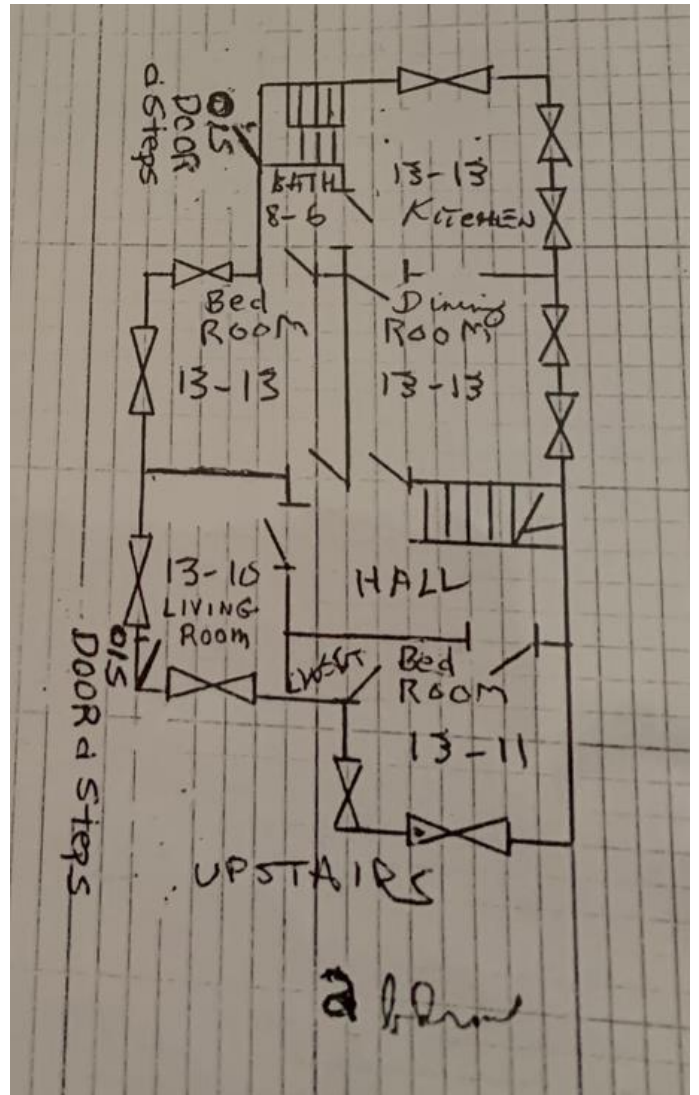 O/S
DOOR
& Steps
BATH
8-6
13-13
KITCHEN
Bed
ROOM
13-13
Dining
ROOM
13-13
13-10
LIVING
ROOM
HALL
O/S
DOOR & Steps
Bed
ROOM
13-11
UPSTAIRS